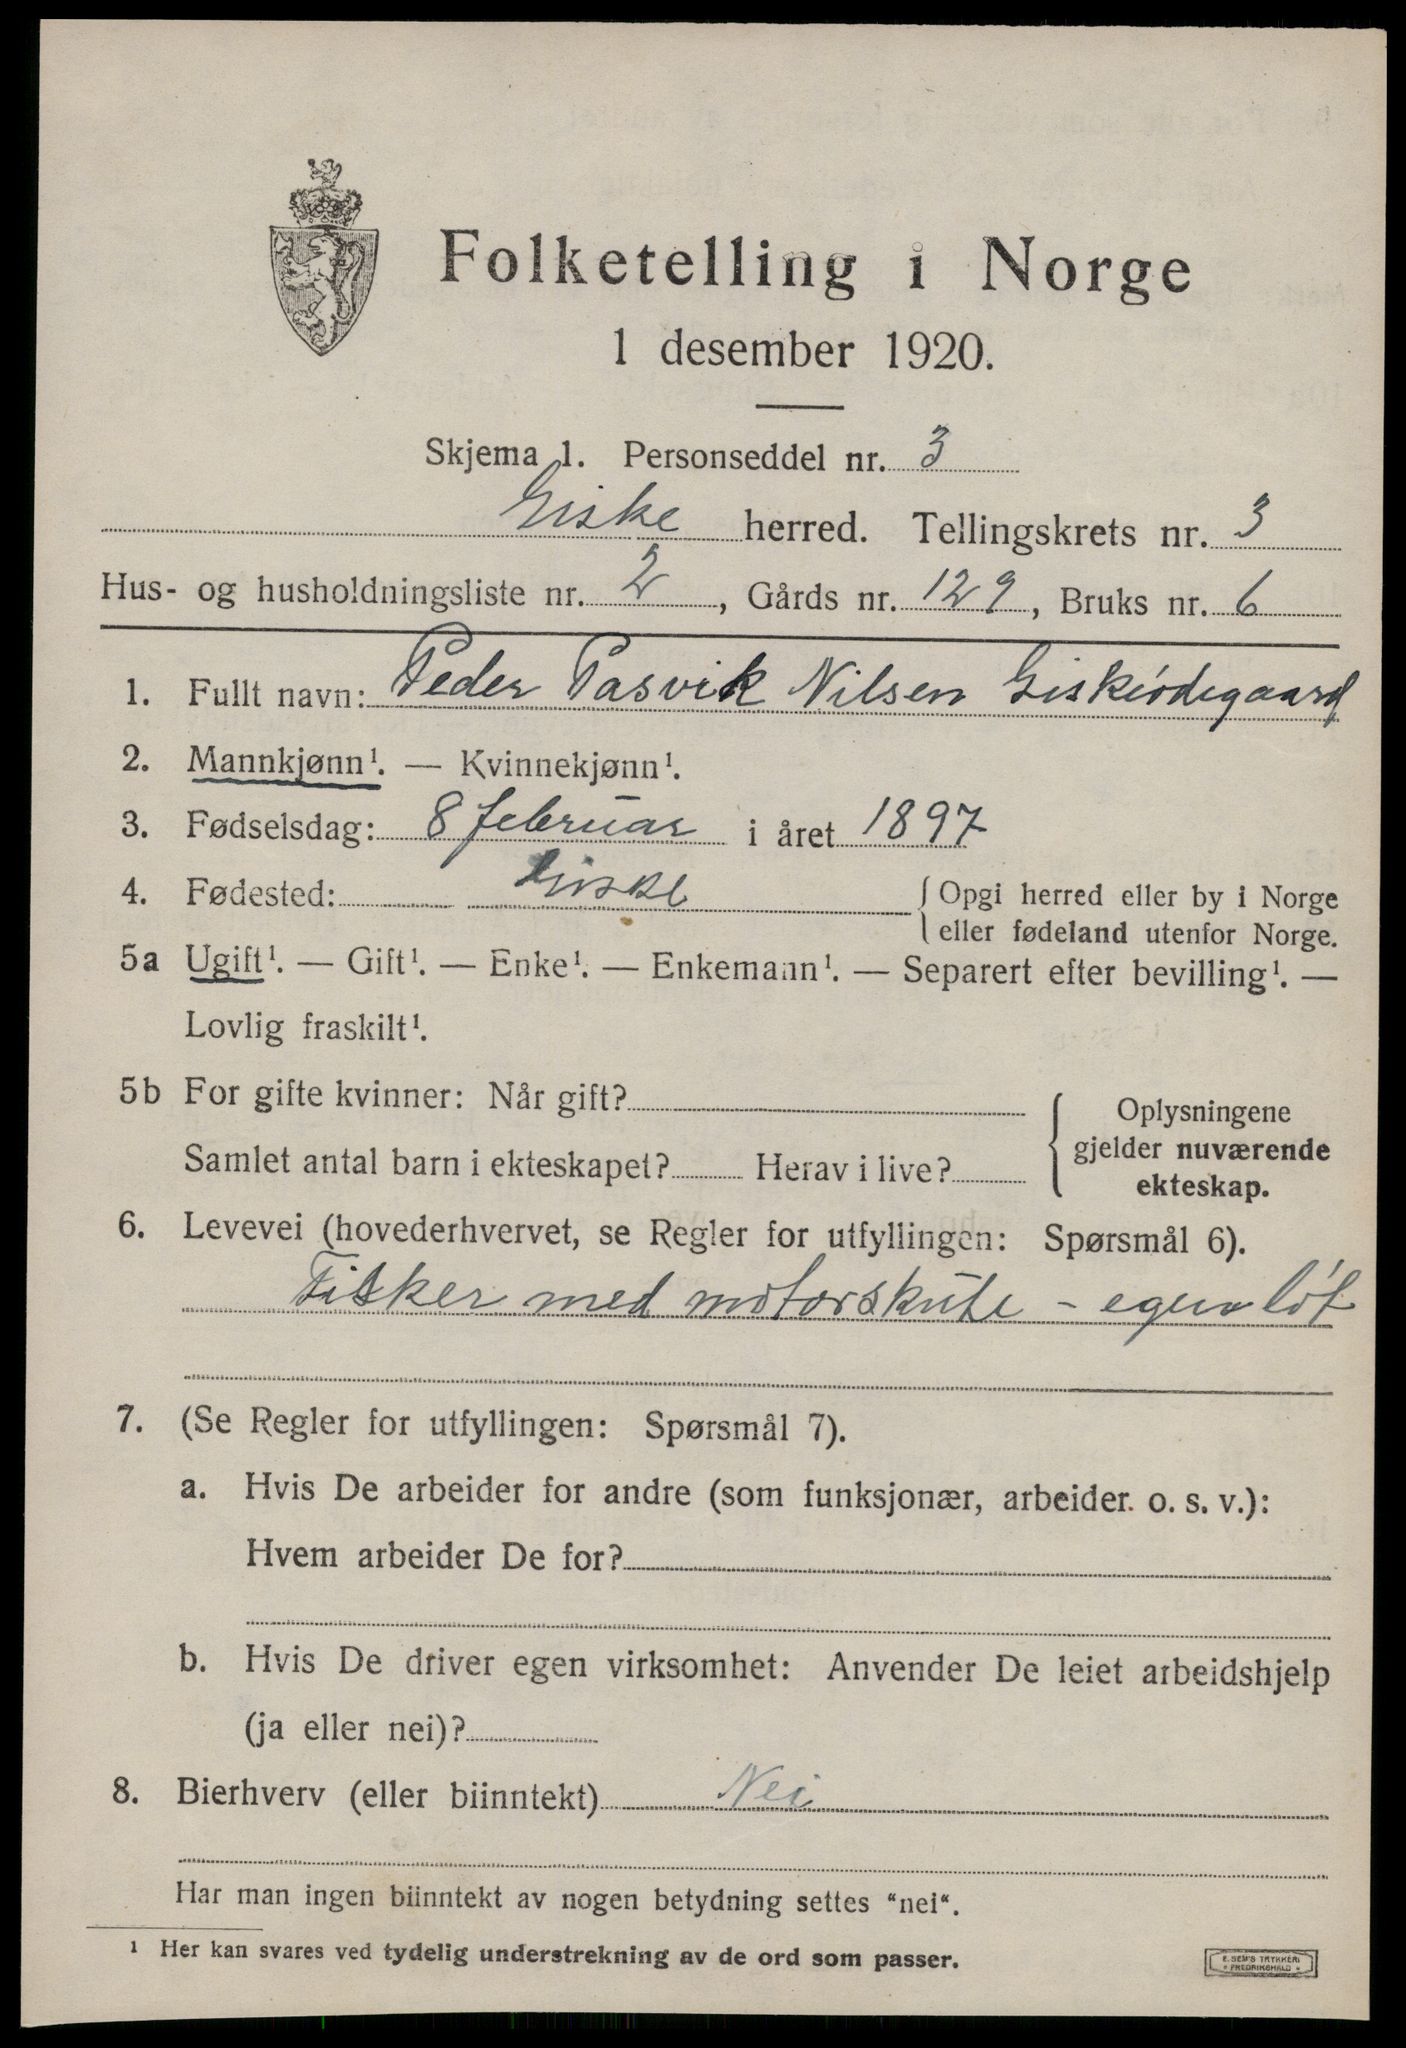 Folketelling i Norge
1 desember 1920.
Skjema 1. Personseddel nr. 3
Giske herred. Tellingskrets nr. 3
Hus- og husholdningsliste nr. 2, Gårds nr. 129, Bruks nr. 6
1. Fullt navn: Peder Pasvik Nilsen Giskeødegaard
2. Mannkjønn¹. — Kvinnekjønn¹.
3. Fødselsdag: 8 februar i året 1897
4. Fødested: Giske { Opgi herred eller by i Norge
eller fødeland utenfor Norge.
5a Ugift¹. — Gift¹. — Enke¹. — Enkemann¹. — Separert efter bevilling¹. —
Lovlig fraskilt¹.
5b For gifte kvinner: Når gift?
Samlet antal barn i ekteskapet? Herav i live?
{ Oplysningene
gjelder nuværende
ekteskap.
6. Levevei (hovederhvervet, se Regler for utfyllingen: Spørsmål 6).
Fisker med motorskute - egen lót
7. (Se Regler for utfyllingen: Spørsmål 7).
a. Hvis De arbeider for andre (som funksjonær, arbeider o. s. v.):
Hvem arbeider De for?
b. Hvis De driver egen virksomhet: Anvender De leiet arbeidshjelp
(ja eller nei)?
8. Bierhverv (eller biinntekt) Nei
Har man ingen biinntekt av nogen betydning settes "nei".
¹ Her kan svares ved tydelig understrekning av de ord som passer.
E. SEM'S TRYKKERI
FREDRIKSHALD